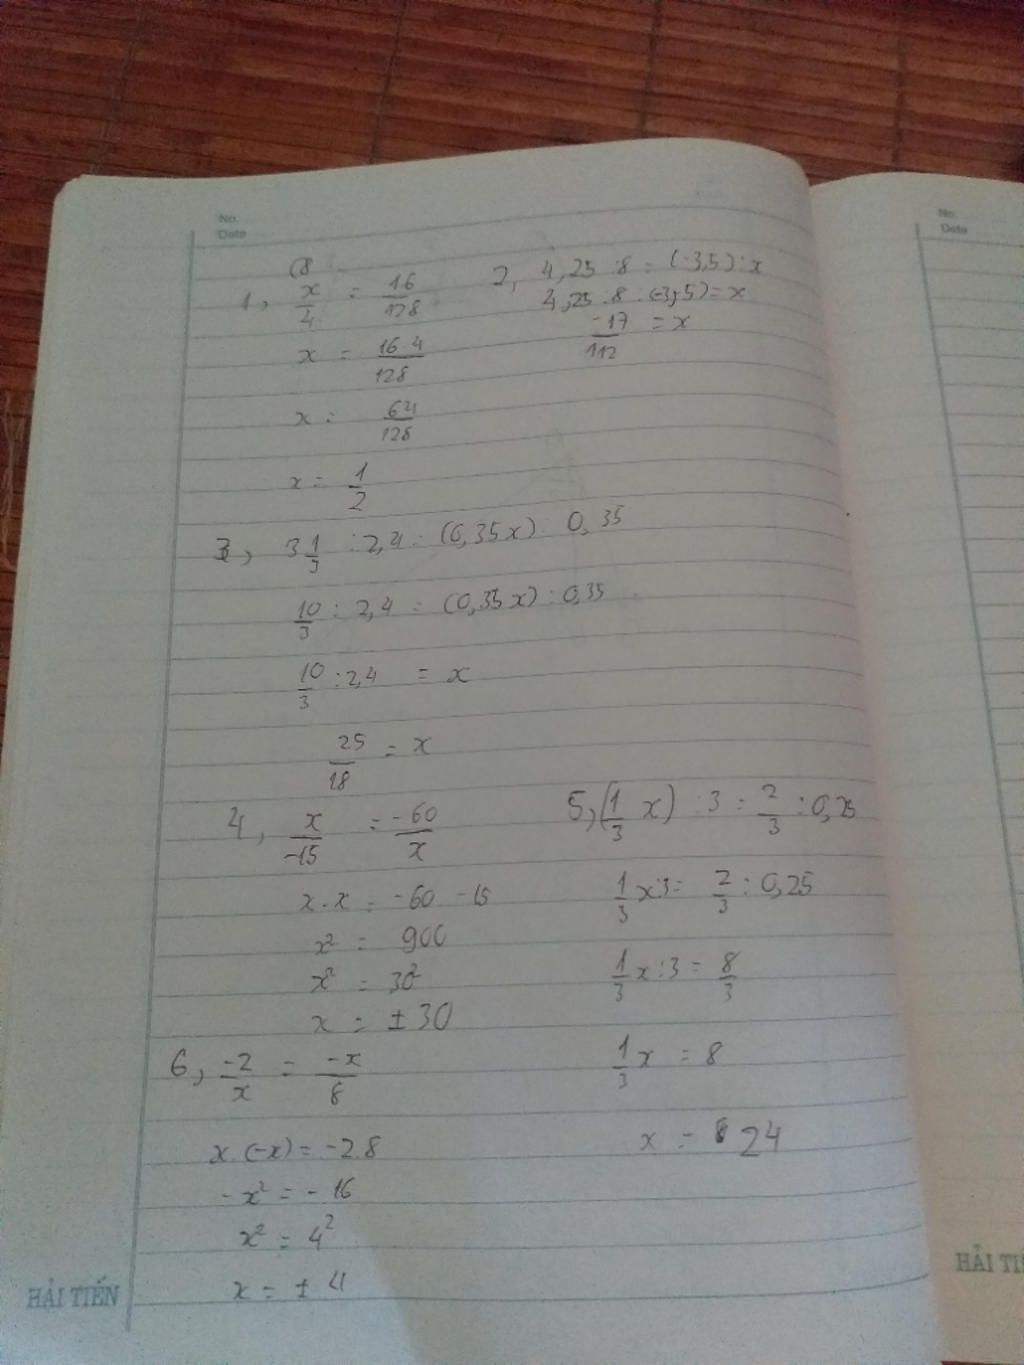 No.
Date
No.
Date
1, x/4 = 16/128
x = 16.4/128
x = 64/128
x = 1/2
2, 4,25 : 8 = (-3,5) : x
4,25 : 8 : (-3,5) = x
-17/112 = x
3, 3 1/3 : 2,4 = (0,35x) : 0,35
10/3 : 2,4 = (0,35x) : 0,35
10/3 : 2,4 = x
25/18 = x
4, x/-15 = -60/x
x.x = -60 -15
x² = 900
x² = 30²
x = ±30
5, (1/3 x) : 3 = 2/3 : 0,25
1/3 x:3 = 2/3 : 0,25
1/3 x:3 = 8/3
1/3 x = 8
x = 24
6, -2/x = -x/8
x.(-x) = -2.8
-x² = -16
x² = 4²
x = ±4
HẢI TIẾN
HẢI TI